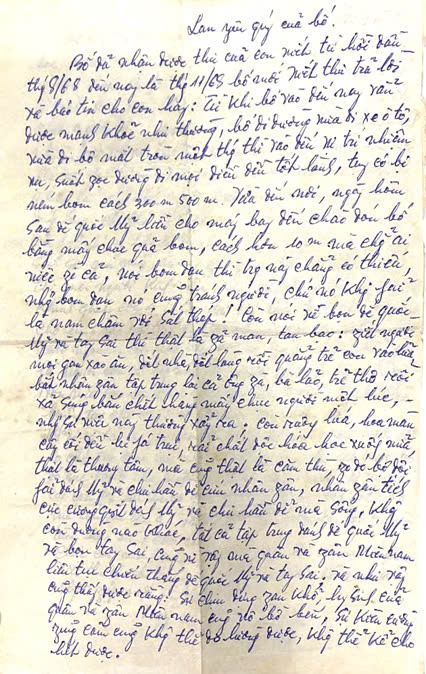 Lan yêu quý của bố!
Bố đã nhận được thư của con viết từ hồi đầu
thg 8/68 đến nay là thg 11/68 bố mới viết thư trả lời
và báo tin cho con hay: Từ khi bố vào đến nay vẫn
được mạnh khoẻ như thường, bố đi đường vừa đi xe ô tô,
vừa đi bộ mất tròn một thg thì vào đến vị trí nhiên
xu, suốt zọc đường đi mọi điều đều tốt lành, tuy có bị
ném bom cách 300m 500m. Vừa đến nơi, ngày hôm
sau đế quốc Mỹ liền cho máy bay đến chào đón bố
bằng mấy chục quả bom, cách hơn 10m mà chẳng ai
việc gì cả, nơi bom đạn thì trg này chẳng có thiếu,
nhg bom đạn nó cũng tránh người, chứ nó khg fải
là nam châm với sắt thép! Còn nói về bọn đế quốc
Mỹ và tay sai thì thật là zã man, tàn bạo: ziết người
moi gan xáo ăn, đốt nhà, đốt làng rồi quẳng trẻ con vào lửa
bắt nhân zân tập trung lại cả ông già, bà lão, trẻ thơ rồi
xả súng bắn chết hàng mấy chục người một lúc,
nhg sự việc này thường xảy ra. Còn ruộng lúa, hoa màu
cây cối đều bị fá trụi, rải chất độc hóa học xuống nữa,
thật là thương tâm, mà cũng thật là căm thù, zo đó bố đòi
fải đánh Mỹ và chư hầu để cứu nhân zân, nhân zân tích
cực cương quyết đánh Mỹ và chư hầu để mà sống, khg
còn đường nào khác, tất cả tập trung đánh đế quốc Mỹ
và bọn tay sai, cũng vì vậy mà quân và zân Miền nam
liên tục chiến thắng đế quốc Mỹ và tay sai, và như vậy
cũng thấy được rằng: Sự chịu đựng gian khổ, hy sinh của
quân và zân Miền nam cũng vô bờ bến, sự kiên cường
zũng cảm cũng khg thể đo lường được, khg thể kể cho
hết được.